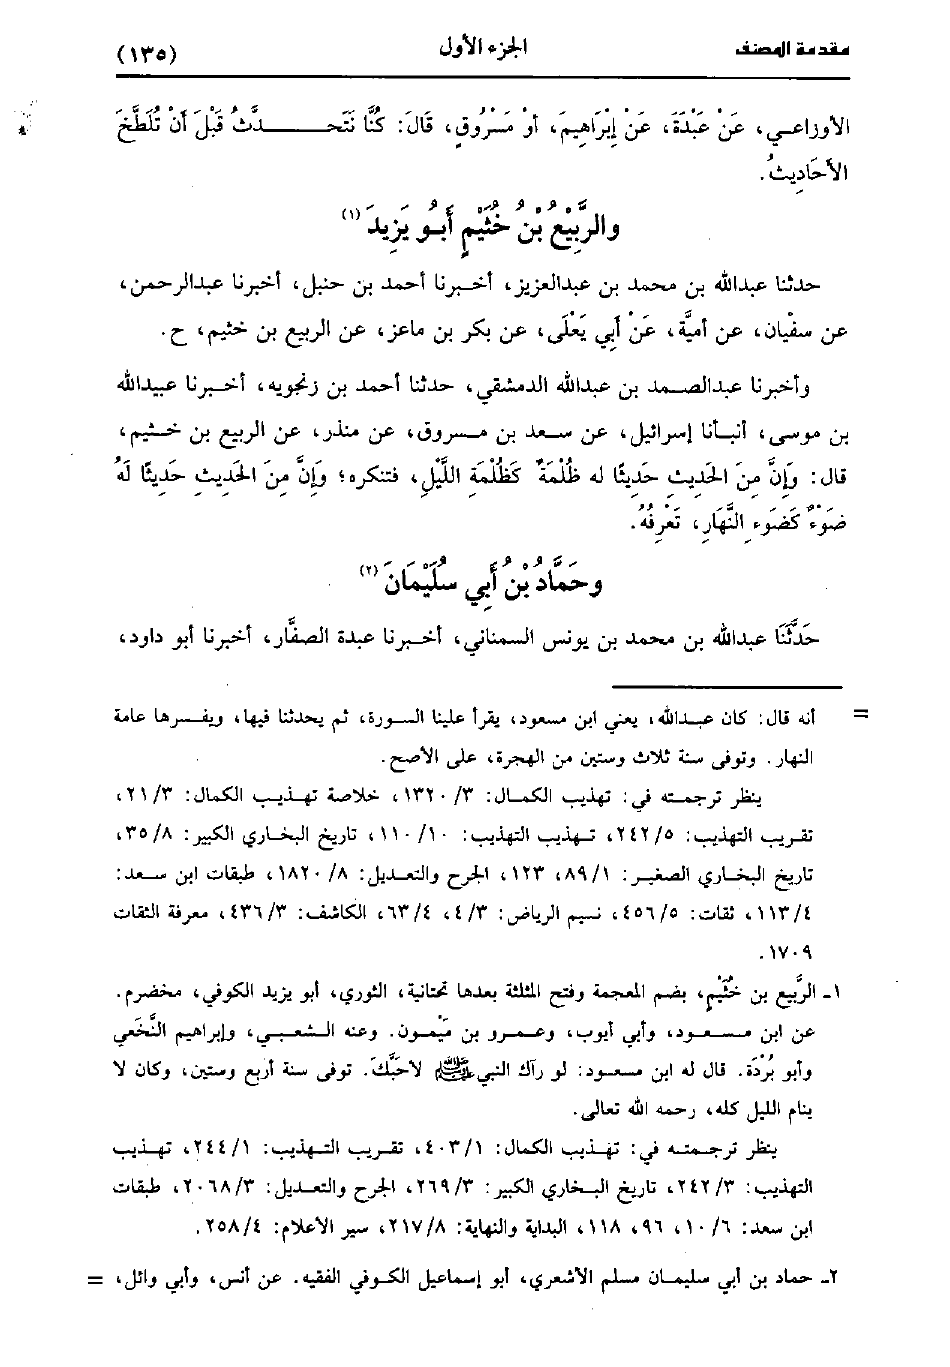 مقدمة المصنف الجزء الأول (١٣٥)
الأوزاعي، عَنْ عَبْدَةَ، عَنْ إِبْرَاهِيمَ، أوْ مَسْرُوقٍ، قَالَ: كُنَّا نَتَحَدَّثُ قَبْلَ أَنْ تُلَطَّخَ
الأحَادِيثُ.
والرَّبِيْعُ بْنُ خُثَيْمٍ أَبُو يَزِيدَ (١)
حدثنا عبدالله بن محمد بن عبدالعزيز، أخبرنا أحمد بن حنبل، أخبرنا عبدالرحمن،
عن سفْيان، عن أميَّة، عَنْ أبي يَعْلَى، عن بكر بن ماعز، عن الربيع بن خثيم، ح.
وأخبرنا عبدالصمد بن عبدالله الدمشقي، حدثنا أحمد بن زنجويه، أخبرنا عبيدالله
بن موسى، أنبأنا إسرائيل، عن سعد بن مسروق، عن منذر، عن الربيع بن خثيم،
قال: وَإِنَّ مِنَ الحَدِيثِ حَدِيثًا له ظُلْمَةٌ كَظُلْمَةِ اللَّيْلِ، فتنكره؛ وَإِنَّ مِنَ الحَدِيثِ حَدِيثًا لَهُ
ضَوْءٌ كَضَوءِ النَّهَارِ، تَعْرِفُهُ.
وحَمَّادُ بْنُ أَبِي سُلَيْمَانَ (٢)
حَدَّثَنَا عبدالله بن محمد بن يونس السمناني، أخبرنا عبدة الصفَّار، أخبرنا أبو داود،
= أنه قال: كان عبدالله، يعني ابن مسعود، يقرأ علينا السورة، ثم يحدثنا فيها، ويفسرها عامة
النهار. وتوفى سنة ثلاث وستين من الهجرة، على الأصح.
ينظر ترجمته في: تهذيب الكمال: ١٣٢٠/٣، خلاصة تهذيب الكمال: ٢١/٣،
تقريب التهذيب: ٢٤٢/٥، تهذيب التهذيب: ١١٠/١٠، تاريخ البخاري الكبير: ٣٥/٨،
تاريخ البخاري الصغير: ٨٩/١، ١٢٣، الجرح والتعديل: ١٨٢٠/٨، طبقات ابن سعد:
١١٣/٤، ثقات: ٤٥٦/٥، نسيم الرياض: ٤/٣، ٦٣/٤، الكاشف: ٤٣٦/٣، معرفة الثقات
١٧٠٩.
١- الرَّبيع بن خُثَيْم، بضم المعجمة وفتح المثلثة بعدها تحتانية، الثوري، أبو يزيد الكوفي، مخضرم.
عن ابن مسعود، وأبي أيوب، وعمرو بن مَيْمون. وعنه الشعبي، وإبراهيم النَّخَعي
وأبو بُرْدَة. قال له ابن مسعود: لو رآك النبي ﷺ لأحَبَّكَ. توفى سنة أربع وستين، وكان لا
ينام الليل كله، رحمه الله تعالى.
ينظر ترجمته في: تهذيب الكمال: ٤٠٣/١، تقريب التهذيب: ٢٤٤/١، تهذيب
التهذيب: ٢٤٢/٣، تاريخ البخاري الكبير: ٢٦٩/٣، الجرح والتعديل: ٢٠٦٨/٣، طبقات
ابن سعد: ١٠/٦، ٩٦، ١١٨، البداية والنهاية: ٢١٧/٨، سير الأعلام: ٢٥٨/٤.
٢- حماد بن أبي سليمان مسلم الأشعري، أبو إسماعيل الكوفي الفقيه. عن أنس، وأبي وائل، =